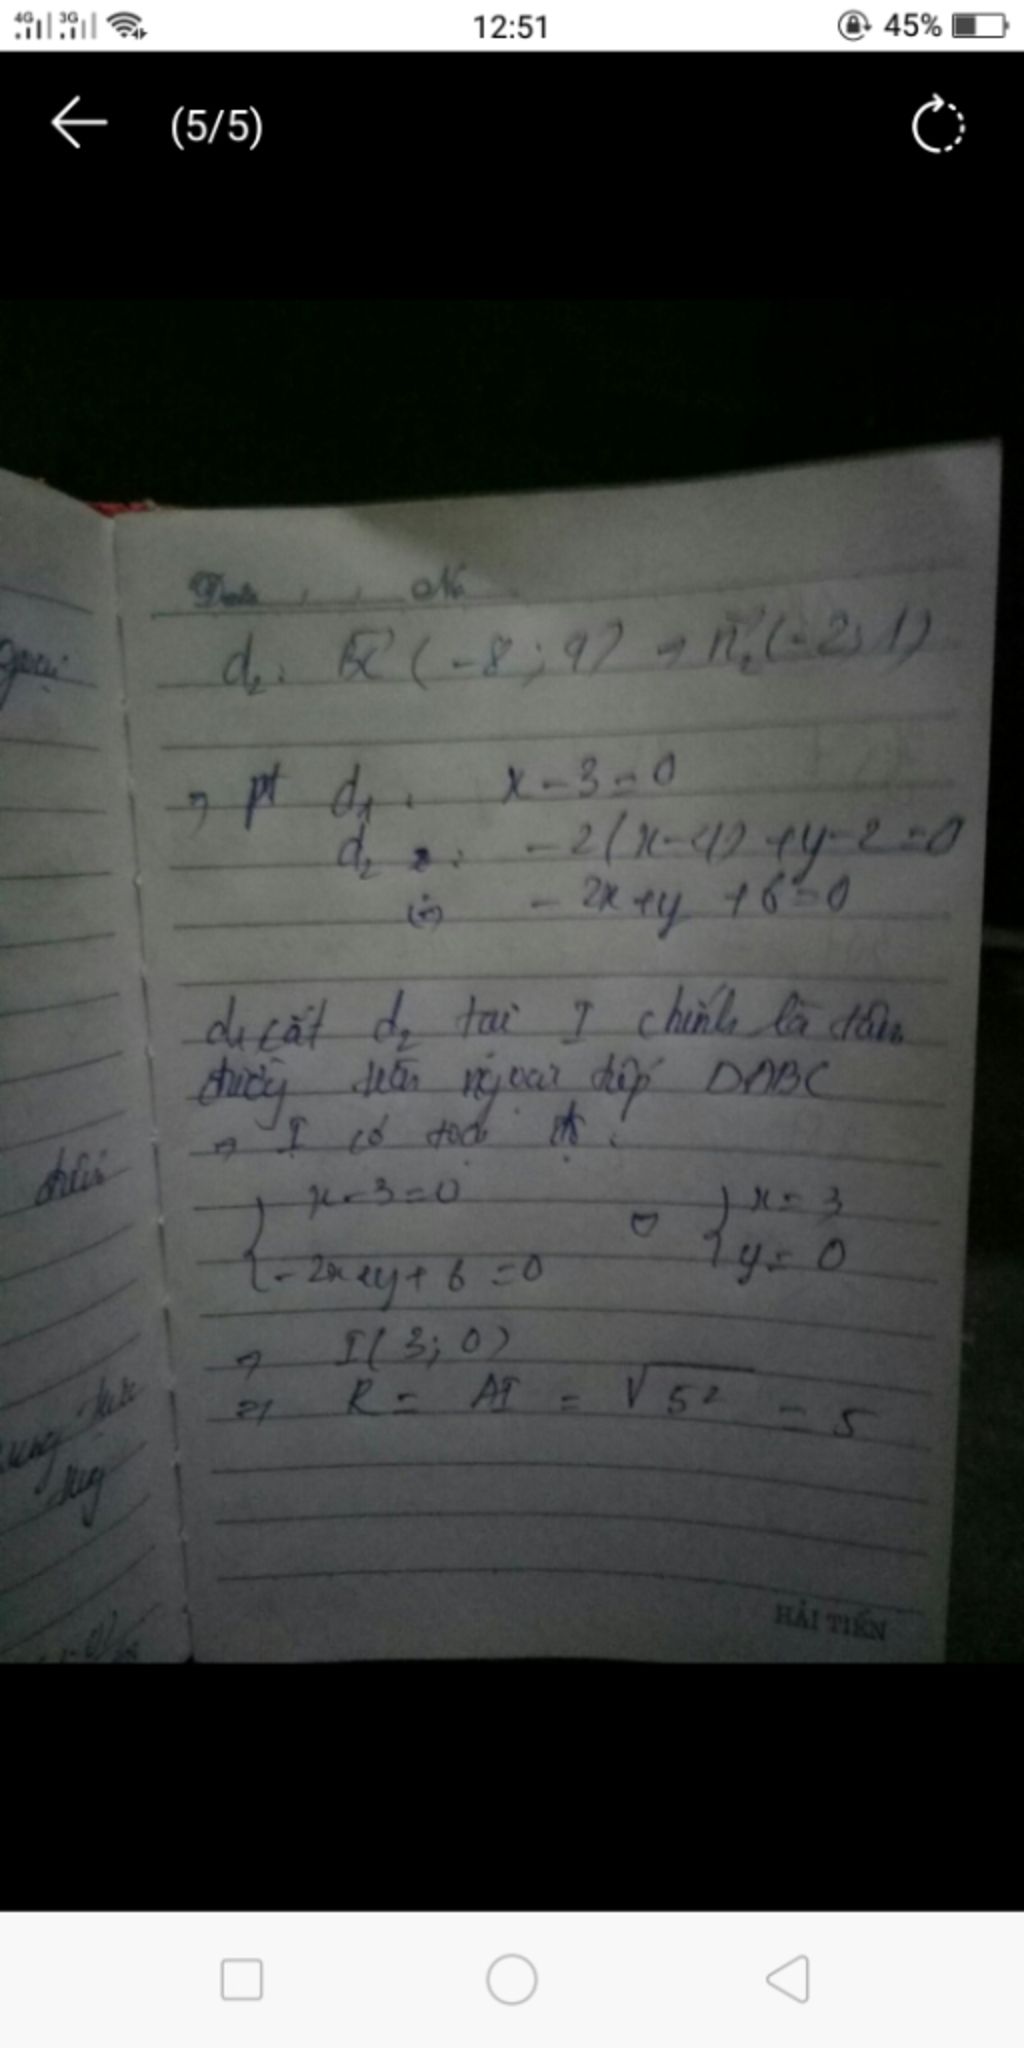 4G 3G 12:51 45%
(5/5)
Date . . No
d₂: BC⃗ (-8; 4) → n₂⃗ (-2; 1)
→ pt d₁: x-3=0
d₂: -2(x-4)+y-2=0
(÷) -2x+y+6=0
d₁ cắt d₂ tại I chính là tâm
đường tròn ngoại tiếp DABC
→ I có tọa độ:
{ x-3=0 ⇔ { x=3
{ -2x+y+6=0 { y=0
→ I(3; 0)
⇒ R = AI = √5² = 5
HẢI TIẾN